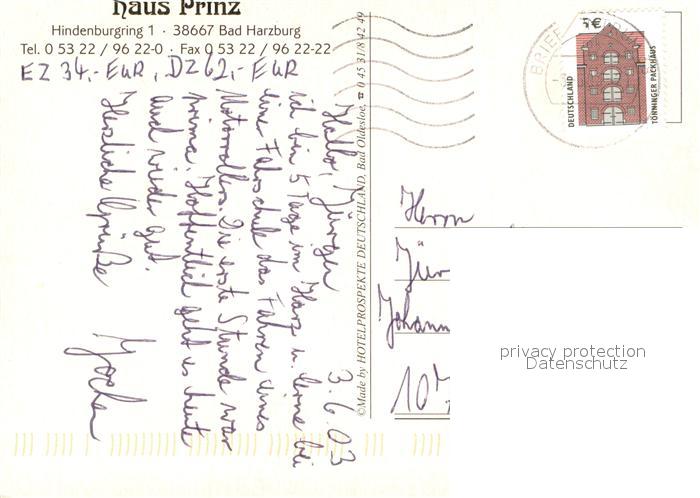 Haus Prinz
Hindenburgring 1 · 38667 Bad Harzburg
Tel. 0 53 22 / 96 22-0 · Fax 0 53 22 / 96 22-22
EZ 34,- EUR, DZ 62,- EUR
3.6.03
Hallo, Jürgen
ich bin 5 Tage im Harz u. lerne bei
einer Fahrschule das Fahren eines
Motorrades. Die erste Stunde war
prima. Hoffentlich geht es heute
auch wieder gut.
Herzliche Grüße
Jochen
©Made by HOTELPROSPEKTE DEUTSCHLAND, Bad Oldesloe, ☎ 0 45 31/8 42 49
BRIEF
DEUTSCHLAND
TÖNNINGER PACKHAUS
Herrn
Jür
Johann
10
privacy protection
Datenschutz